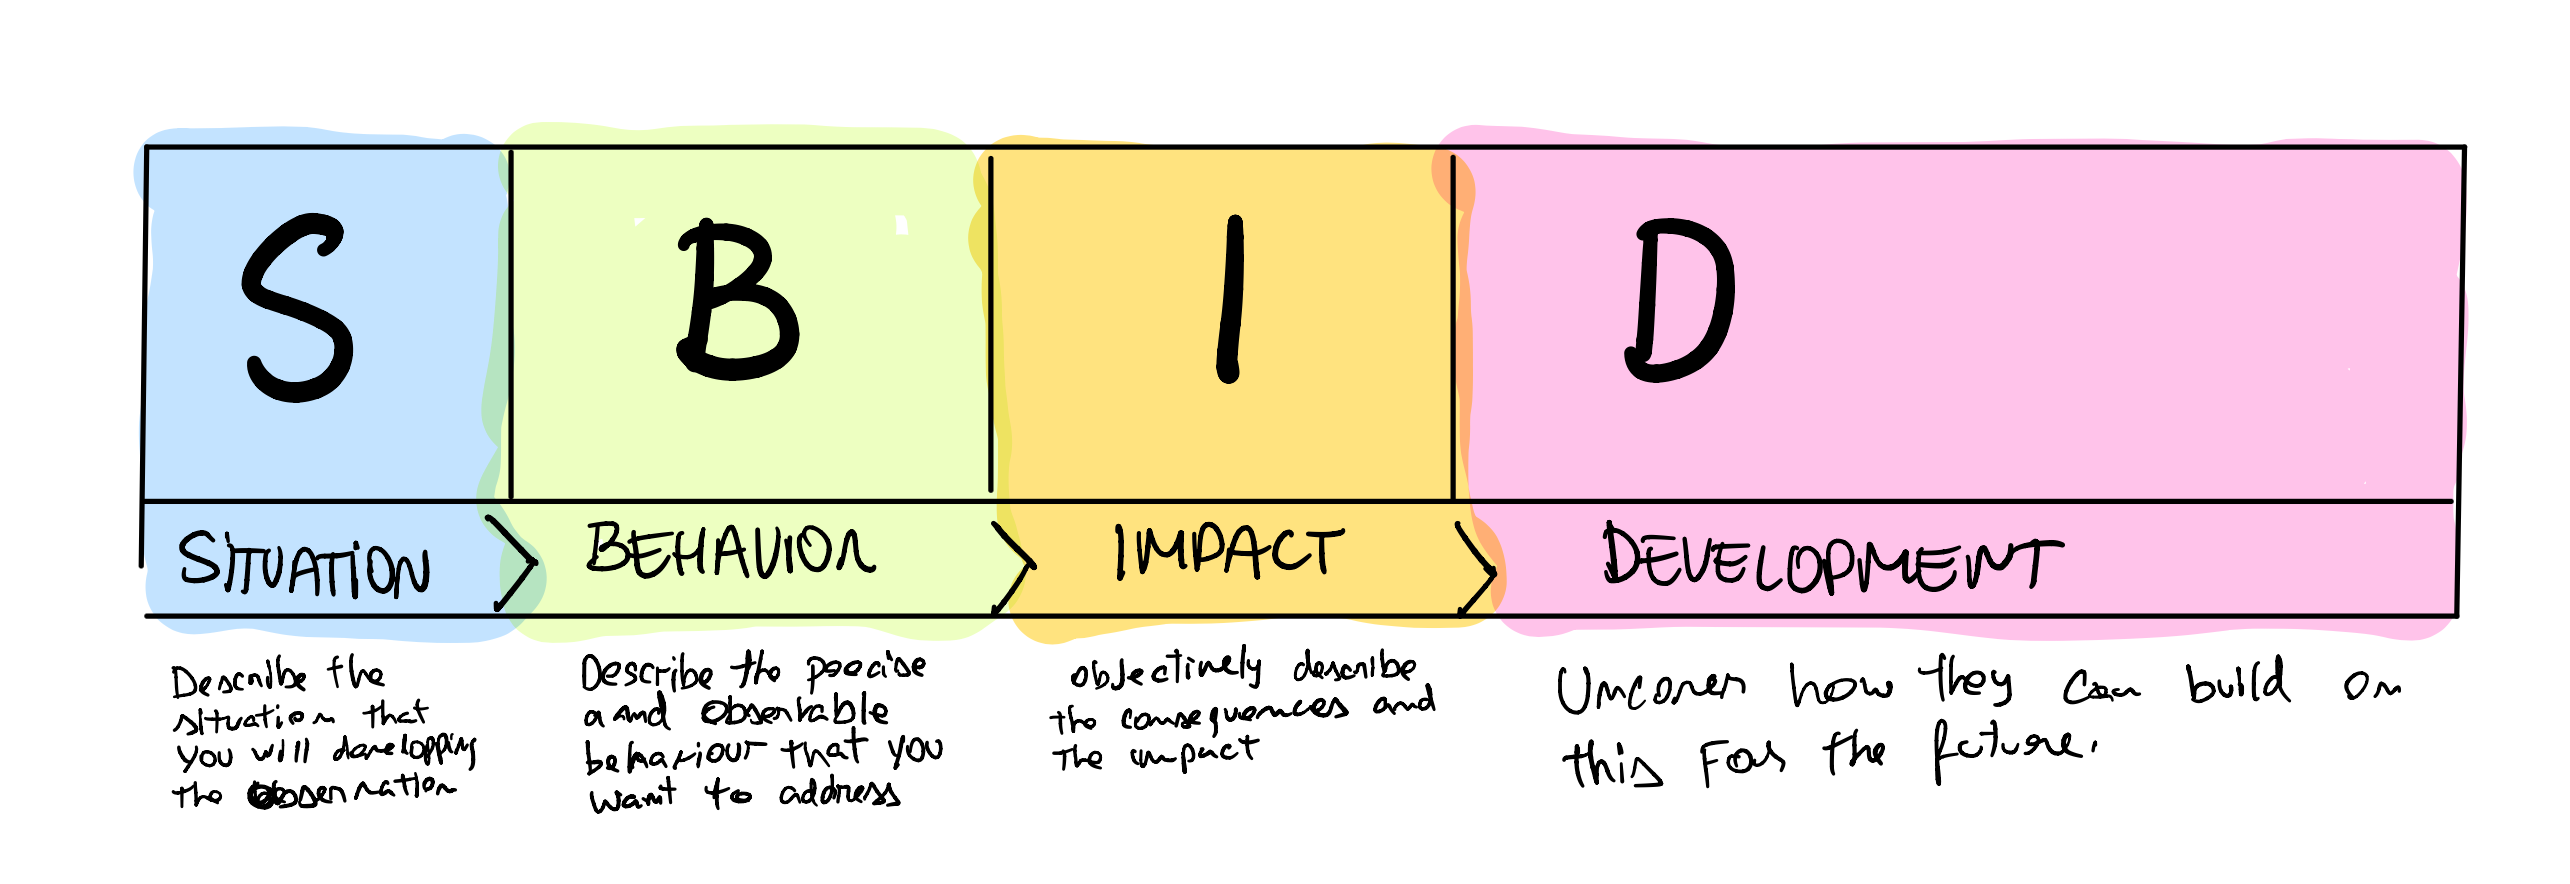 S
B
I
D
SITUATION
BEHAVIOR
IMPACT
DEVELOPMENT
Describe the
situation that
you will developping
the observation
Describe the precise
and observable
behaviour that you
want to address
objectively describe
the consequences and
the impact
Uncover how they can build on
this for the future.